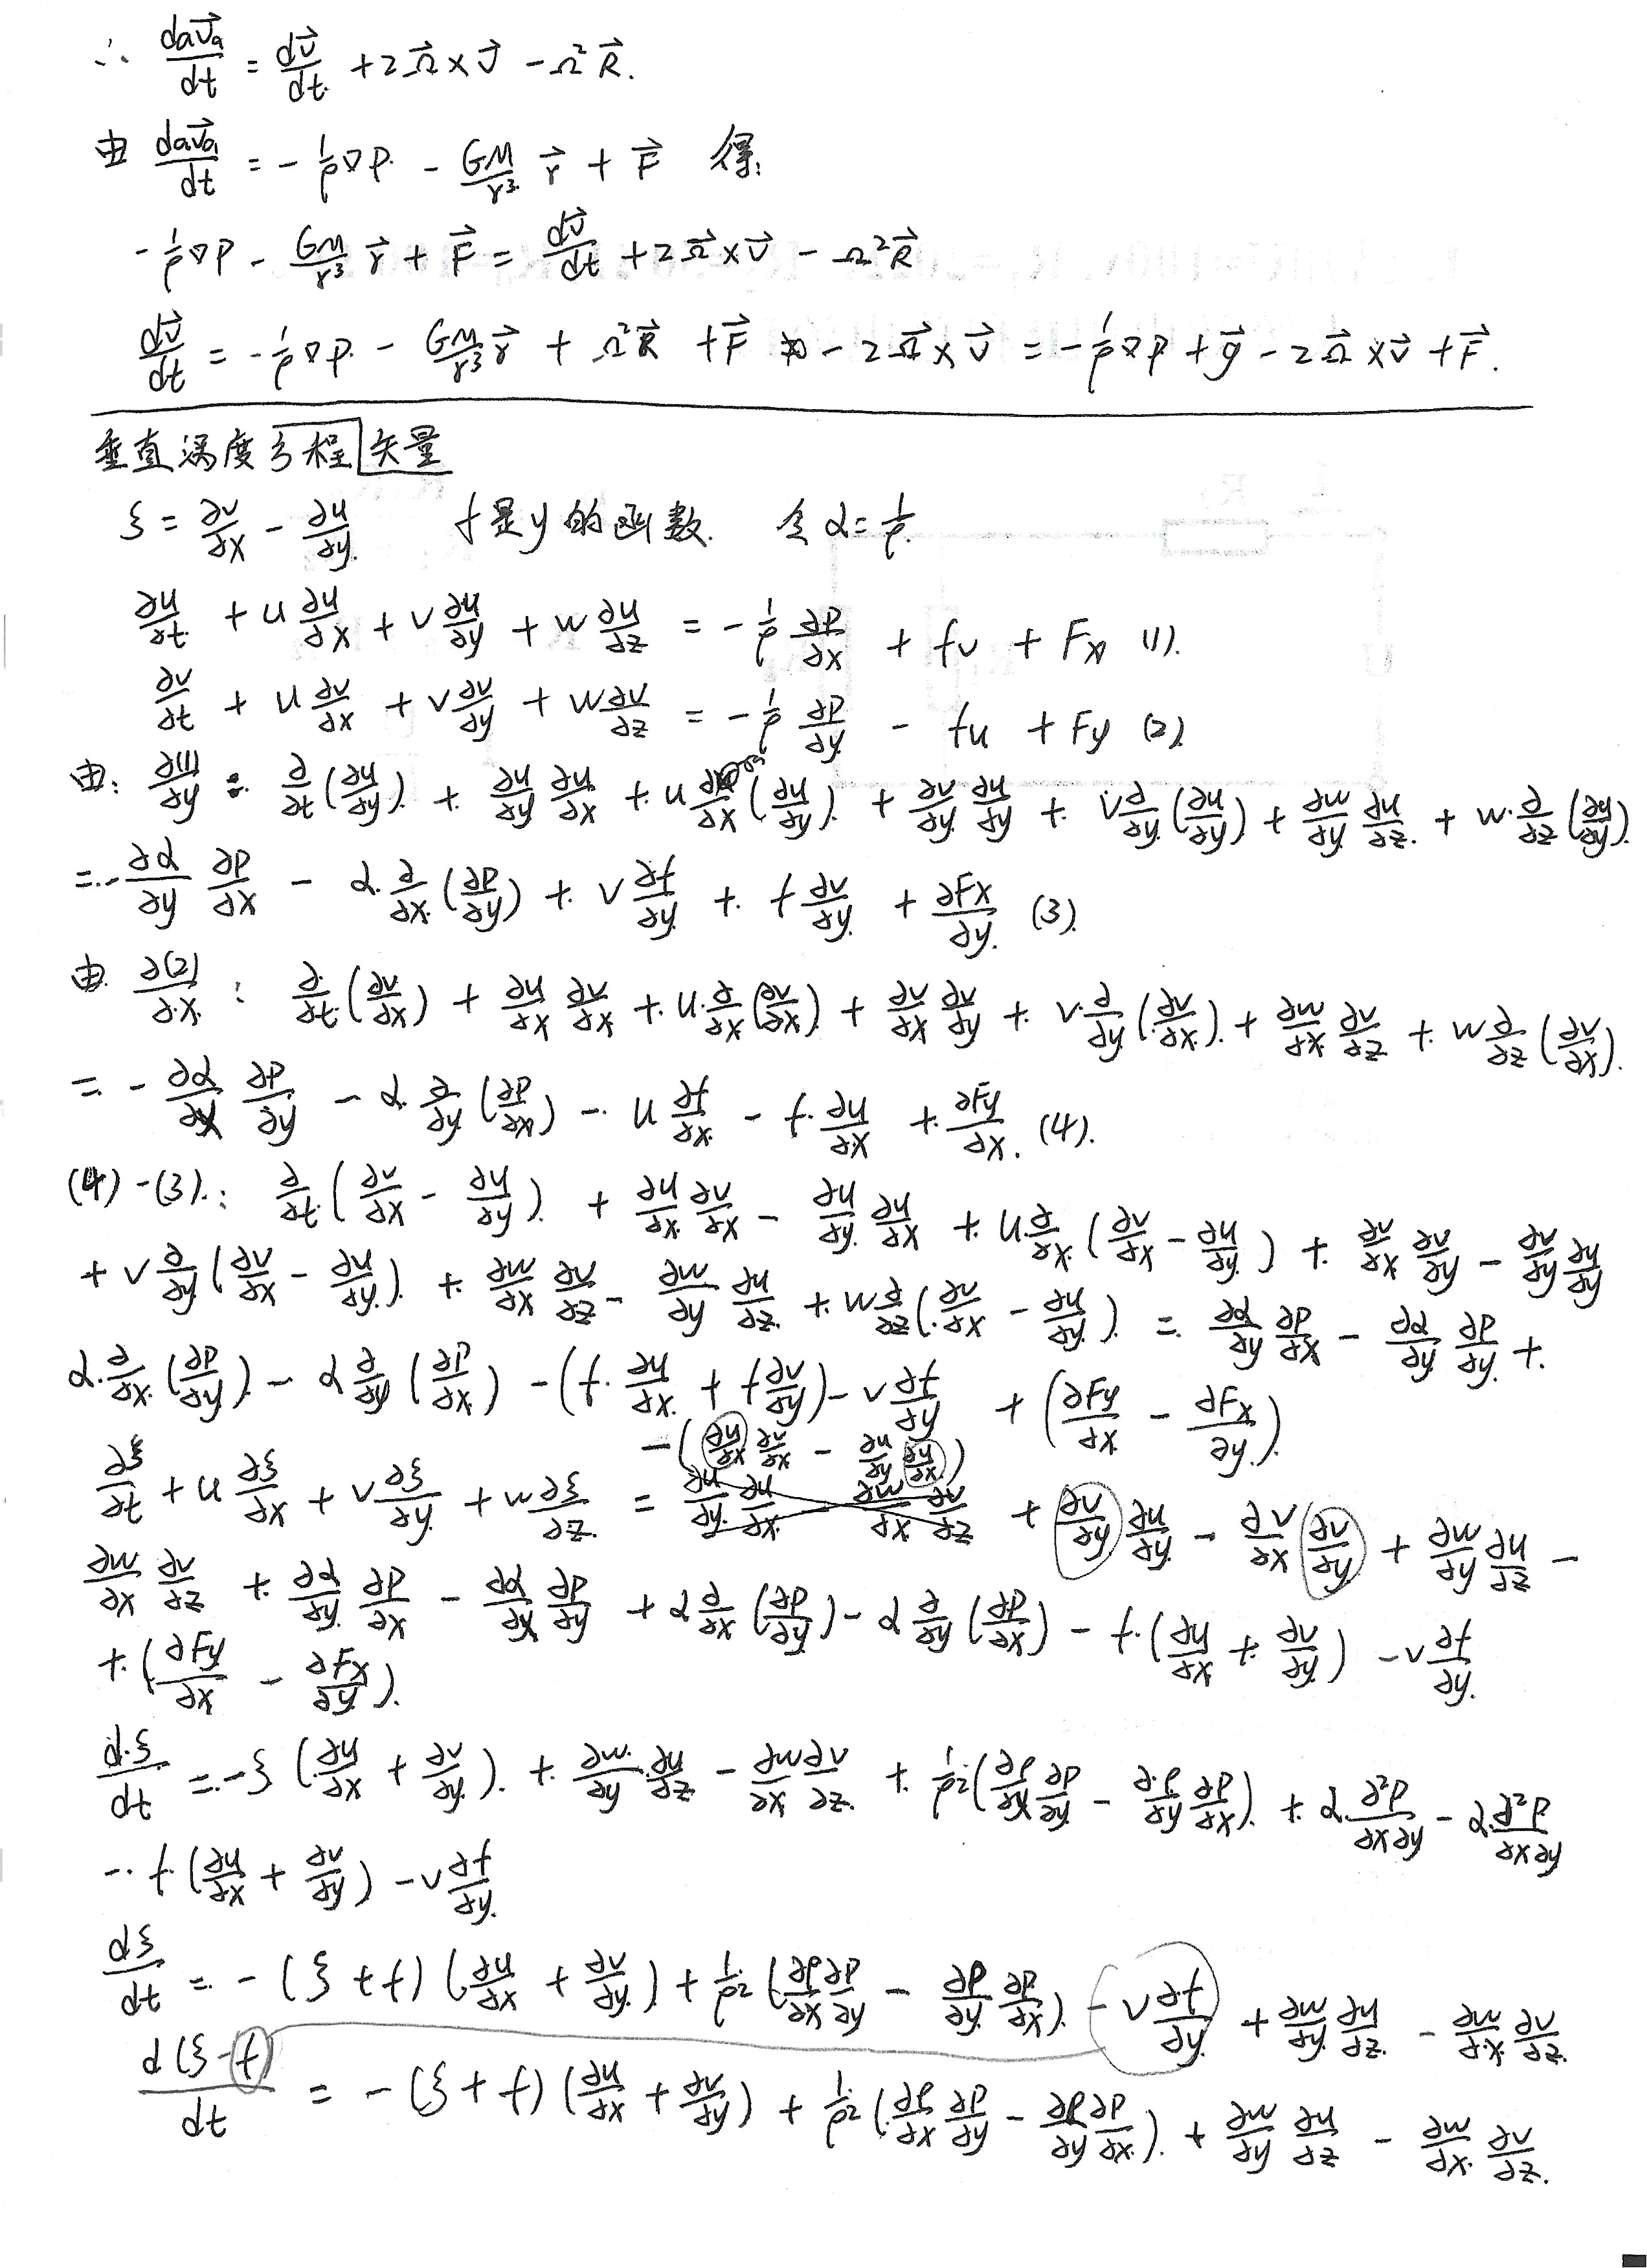 ∴ d_a v⃗_a/dt = dv⃗/dt + 2Ω⃗×v⃗ - Ω²R⃗.
由 d_a v⃗_a/dt = -1/ρ ∇P - GM/r³ r⃗ + F⃗ 得:
-1/ρ ∇P - GM/r³ r⃗ + F⃗ = dv⃗/dt + 2Ω⃗×v⃗ - Ω²R⃗
dv⃗/dt = -1/ρ ∇P - GM/r³ r⃗ + Ω²R⃗ + F⃗ - 2Ω⃗×v⃗ = -1/ρ ∇P + g⃗ - 2Ω⃗×v⃗ + F⃗.
垂直涡度方程 矢量
ξ = ∂v/∂x - ∂u/∂y f是y的函数. 令α=1/ρ.
∂u/∂t + u ∂u/∂x + v ∂u/∂y + w ∂u/∂z = -1/ρ ∂P/∂x + fv + Fx (1).
∂v/∂t + u ∂v/∂x + v ∂v/∂y + w ∂v/∂z = -1/ρ ∂P/∂y - fu + Fy (2)
由: ∂(1)/∂y : ∂/∂t(∂u/∂y) + ∂u/∂y ∂u/∂x + u ∂/∂x(∂u/∂y) + ∂v/∂y ∂u/∂y + v ∂/∂y(∂u/∂y) + ∂w/∂y ∂u/∂z + w ∂/∂z(∂u/∂y).
= -∂α/∂y ∂P/∂x - α ∂/∂x(∂P/∂y) + v ∂f/∂y + f ∂v/∂y + ∂Fx/∂y (3).
由 ∂(2)/∂x : ∂/∂t(∂v/∂x) + ∂u/∂x ∂v/∂x + u ∂/∂x(∂v/∂x) + ∂v/∂x ∂v/∂y + v ∂/∂y(∂v/∂x) + ∂w/∂x ∂v/∂z + w ∂/∂z(∂v/∂x).
= -∂α/∂x ∂P/∂y - α ∂/∂y(∂P/∂x) - u ∂f/∂x - f ∂u/∂x + ∂Fy/∂x (4).
(4)-(3): ∂/∂t(∂v/∂x - ∂u/∂y) + ∂u/∂x ∂v/∂x - ∂u/∂y ∂u/∂x + u ∂/∂x(∂v/∂x - ∂u/∂y) + ∂v/∂x ∂v/∂y - ∂v/∂y ∂u/∂y
+ v ∂/∂y(∂v/∂x - ∂u/∂y) + ∂w/∂x ∂v/∂z - ∂w/∂y ∂u/∂z + w ∂/∂z(∂v/∂x - ∂u/∂y) = ∂α/∂y ∂P/∂x - ∂α/∂y ∂P/∂y +
α ∂/∂x(∂P/∂y) - α ∂/∂y(∂P/∂x) - (f ∂u/∂x + f ∂v/∂y) - v ∂f/∂y + (∂Fy/∂x - ∂Fx/∂y)
-(∂u/∂x ∂v/∂x - ∂u/∂y ∂u/∂x)
∂ξ/∂t + u ∂ξ/∂x + v ∂ξ/∂y + w ∂ξ/∂z = ∂u/∂y ∂u/∂x - ∂w/∂x ∂v/∂z + ∂v/∂y ∂u/∂y - ∂v/∂x ∂v/∂y + ∂w/∂y ∂u/∂z -
∂w/∂x ∂v/∂z + ∂α/∂y ∂P/∂x - ∂α/∂x ∂P/∂y + α ∂/∂x(∂P/∂y) - α ∂/∂y(∂P/∂x) - f(∂u/∂x + ∂v/∂y) - v ∂f/∂y
+ (∂Fy/∂x - ∂Fx/∂y).
dξ/dt = -ξ(∂u/∂x + ∂v/∂y) + ∂w/∂y ∂u/∂z - ∂w/∂x ∂v/∂z + 1/ρ²(∂ρ/∂x ∂P/∂y - ∂ρ/∂y ∂P/∂x) + α ∂²P/∂x∂y - α ∂²P/∂x∂y
- f(∂u/∂x + ∂v/∂y) - v ∂f/∂y
dξ/dt = -(ξ+f)(∂u/∂x + ∂v/∂y) + 1/ρ²(∂ρ/∂x ∂P/∂y - ∂ρ/∂y ∂P/∂x) - v ∂f/∂y + ∂w/∂y ∂u/∂z - ∂w/∂x ∂v/∂z.
d(ξ-f)/dt = -(ξ+f)(∂u/∂x + ∂v/∂y) + 1/ρ²(∂ρ/∂x ∂P/∂y - ∂ρ/∂y ∂P/∂x) + ∂w/∂y ∂u/∂z - ∂w/∂x ∂v/∂z.